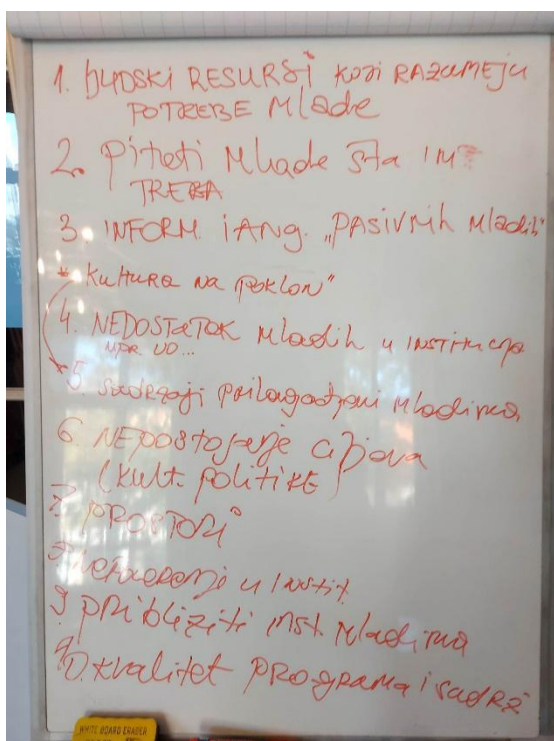 1. LJUDSKI RESURSI KOJI RAZUMEJU
POTREBE Mlade
2. Pitati Mlade šta IM
TREBA
3. INFORM. i ANG. „PASIVNIH Mladih"
* Kultura na poklon"
4. NEDOSTATAK Mladih u INSTITUCIJA
NPR. UO...
5. sadržaji prilagodjeni Mladima
6. NEPOSTOJANJE ciljova
(kult. POLITIKE)
7. PROSTORI
nepoverenje u Instit.
9 približiti inst. Mladima
10. kvalitet PROGRAMA i sadrž
WHITE BOARD ERASER